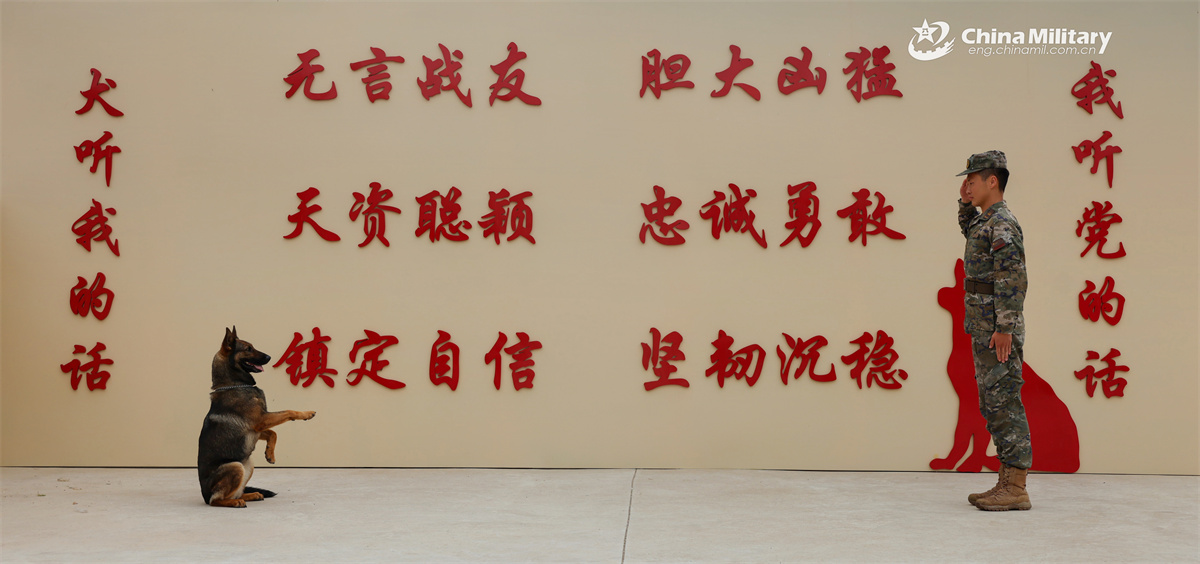 犬听我的话
无言战友
胆大凶猛
天资聪颖
忠诚勇敢
镇定自信
坚韧沉稳
我听党的话
China Military
eng.chinamil.com.cn